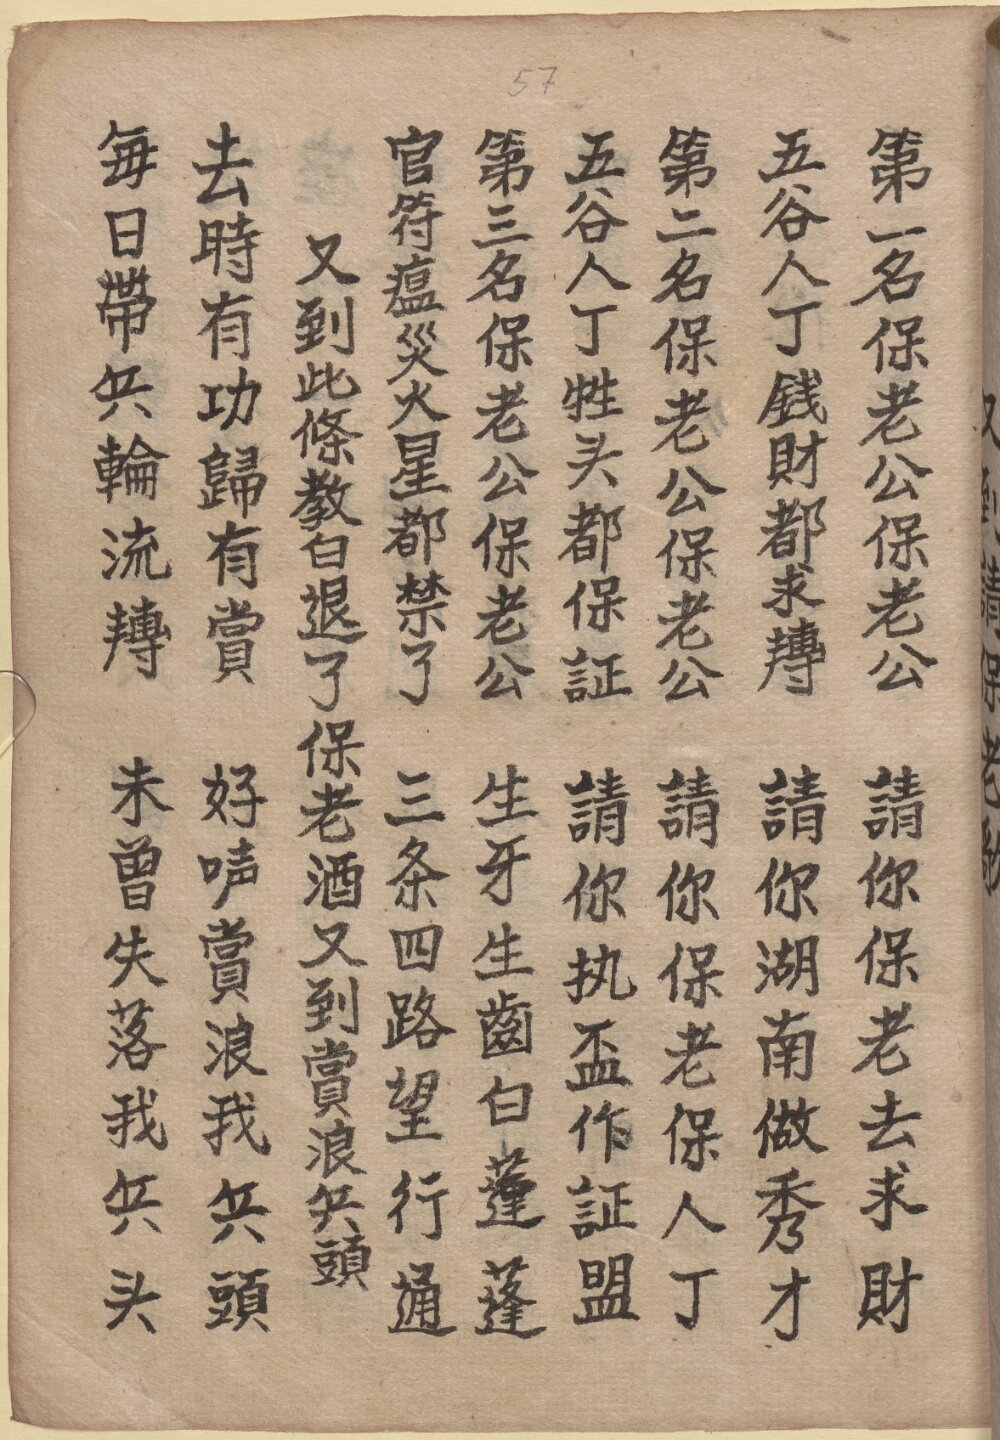 57
第一名保老公保老公 請你保老去求財
五谷人丁錢財都求轉 請你湖南做秀才
第二名保老公保老公 請你保老保人丁
五谷人丁牲头都保証 請你执盃作証盟
第三名保老公保老公 生牙生齒白蓬蓬
官符瘟災火星都禁了 三条四路望行通
又到此條教白退了保老酒又到賞浪兵頭
去時有功歸有賞 好唪賞浪我兵頭
每日帶兵輪流轉 未曾失落我兵头